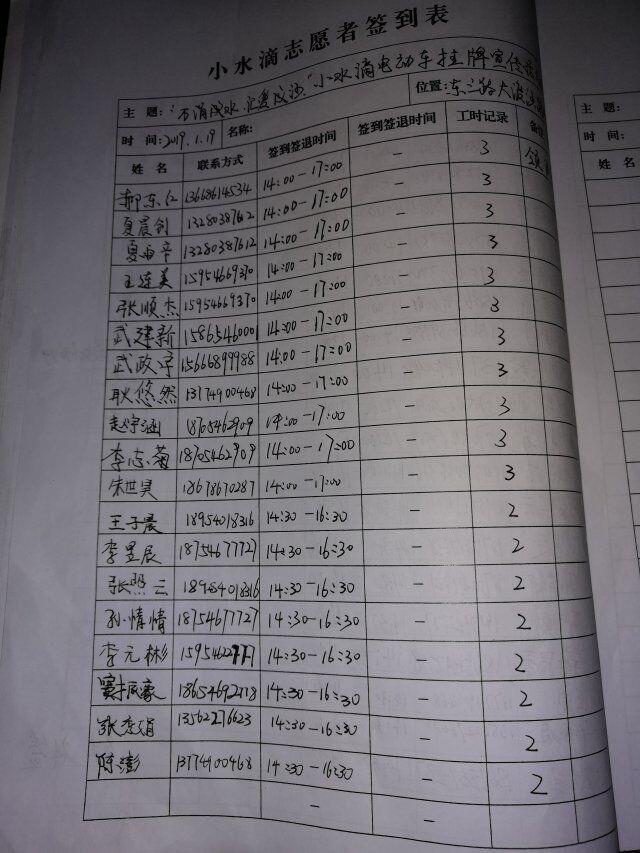 小水滴志愿者签到表
主 题: 小水滴电动车挂牌宣传
时 间: 2019.1.19 名称: 位置: 东三路大
姓 名 联系方式 签到签退时间 签到签退时间 工时记录 备注
郝东仁 13668614534 14:00-17:00 - 3
夏晨剑 13280387612 14:00-17:00 - 3
夏 13280387612 14:00-17:00 - 3
王连美 15954669370 14:00-17:00 - 3
张顺杰 15954669370 14:00-17:00 - 3
武建新 15865460001 14:00-17:00 - 3
武政 15666899988 14:00-17:00 - 3
耿悠然 13774900468 14:00-17:00 - 3
赵宇涵 18705462909 14:00-17:00 - 3
李志菊 18705462909 14:00-17:00 - 3
朱世昊 18678670287 14:00-17:00 - 3
王子晨 18954018316 14:30-16:30 - 2
李昱辰 18754677727 14:30-16:30 - 2
张照云 18954018316 14:30-16:30 - 2
孙情情 18754677727 14:30-16:30 - 2
李元彬 14:30-16:30 - 2
18654692118 14:30-16:30 - 2
张秀娟 13562276623 14:30-16:30 - 2
陈澎 13774900468 14:30-16:30 - 2
- -
主 题:
时 间:
姓 名